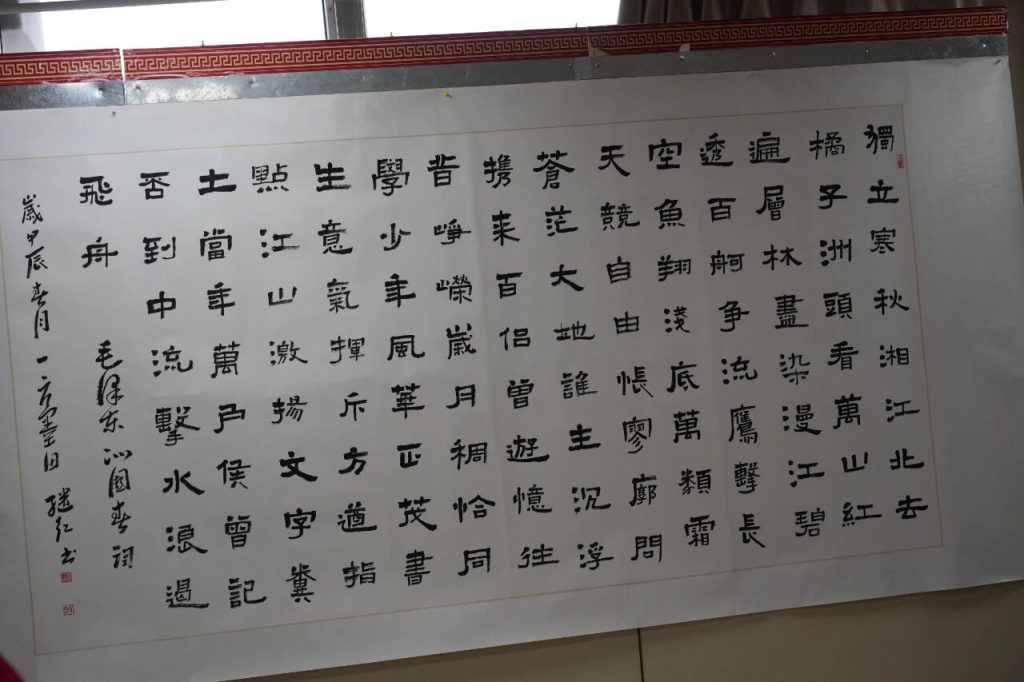 獨立寒秋湘江北去
橘子洲頭看萬山紅
遍層林盡染漫江碧
透百舸争流鷹擊長
空魚翔淺底萬類霜
天競自由悵廖廓問
蒼茫大地誰主沉浮
携来百侣曾遊憶往
昔崢嶸歲月稠恰同
學少年風華正茂書
生意氣揮斥方遒指
點江山激揚文字糞
土當年萬户侯曾記
否到中流擊水浪遏
飛舟 毛泽东沁園春詞
歲甲辰春月一方墨田继红书